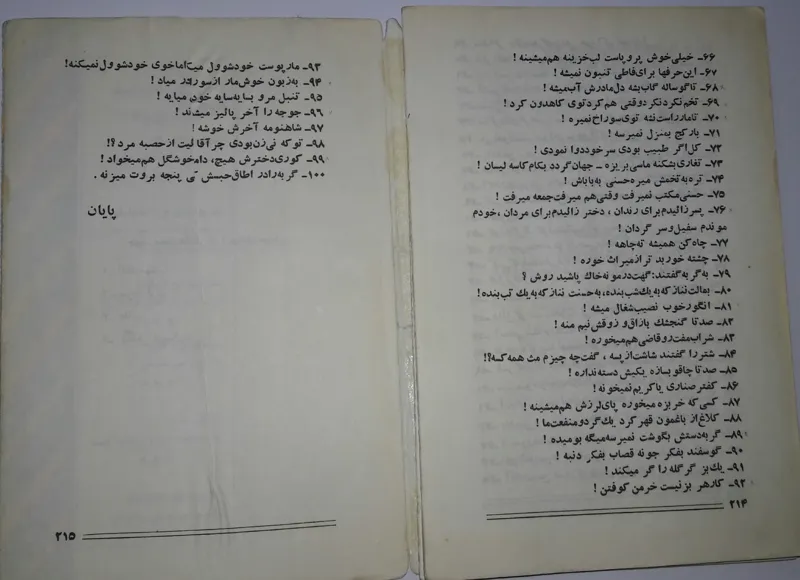 ۶۶ـ خیلی‌خوش پروپاست لب‌خزینه هم‌میشینه !
۶۷ـ این‌حرفها برای‌فاطی تنبون نمیشه !
۶۸ـ تاگوساله گاب‌بشه دل‌مادرش آب‌میشه !
۶۹ـ تخم‌نکردنکردوقتی هم‌کردتوی کاهدون کرد !
۷۰ـ تامارراست‌نشه توی‌سوراخ‌نمیره !
۷۱ـ بارکج بمنزل نمیرسه !
۷۲ـ کل‌اگر طبیب بودی سرخوددوا نمودی !
۷۳ـ تغاری‌بشکنه ماسی‌بریزه ـ جهان‌گردد بکام‌کاسه لیسان !
۷۴ـ تره‌به‌تخمش میره‌حسنی به‌باباش !
۷۵ـ حسنی‌مکتب نمیرفت وقتی‌هم میرفت‌جمعه میرفت !
۷۶ـ پسرزائیدم‌برای رندان ، دختر زائیدم‌برای مردان ،خودم
موندم سفیل‌وسر گردان !
۷۷ـ چاه‌کن همیشه ته‌چاهه !
۷۸ـ چشته خوربد تراز‌میراث خوره !
۷۹ـ به‌گربه‌گفتند:گهت‌درمونه‌خاك پاشید روش ؟
۸۰ـ بمالت‌نناز‌که‌به‌یك‌شب‌بنده،به‌حسنت نناز‌که‌به‌یك تب‌بنده!
۸۱ـ انگورخوب نصیب‌شغال میشه !
۸۲ـ صدتا گنجشك بازاق‌و زوقش‌نیم منه !
۸۳ـ شراب‌مفت‌روقاضی‌هم‌میخوره !
۸۴ـ شتررا گفتند شاشت‌ازپسه ، گفت‌چه چیزم مث همه‌کسه؟!
۸۵ـ صدتا چاقوبسازه یکیش دسته‌نداره !
۸۶ـ کفترصناری یاکریم‌نمیخونه !
۸۷ـ کسی‌که خربزه میخوره پای‌لرزش هم‌میشینه !
۸۸ـ کلاغ‌از باغمون قهرکرد یك‌گردومنفعت‌ما !
۸۹ـ گربه‌دستش بگوشت نمیرسه‌میگه بومیده !
۹۰ـ گوسفند بفکر جونه قصاب بفکر دنبه !
۹۱ـ یك‌بز گرگله‌را گر میکند !
۹۲ـ کارهر بزنیست خرمن کوفتن !
۲۱۴
۹۳ـ مارپوست خودشوول میکنه‌اماخوی خودشوول‌نمیکنه!
۹۴ـ به‌زبون خوش‌مار ازسوراخ‌در میاد !
۹۵ـ تنبل مرو بسایه‌سایه خودش میایه !
۹۶ـ جوجه را آخر پائیز میشمرند !
۹۷ـ شاهنومه آخرش خوشه !
۹۸ـ توکه نی‌زن‌بودی چراآقا ئیت ازحصبه مرد ؟!
۹۹ـ کوری‌دخترش هیچ، دامادخوشگل هم‌میخواد !
۱۰۰ـ گربه‌رادر اطاق‌حبسش کنی پنجه بروت میزنه .
پایان
۲۱۵